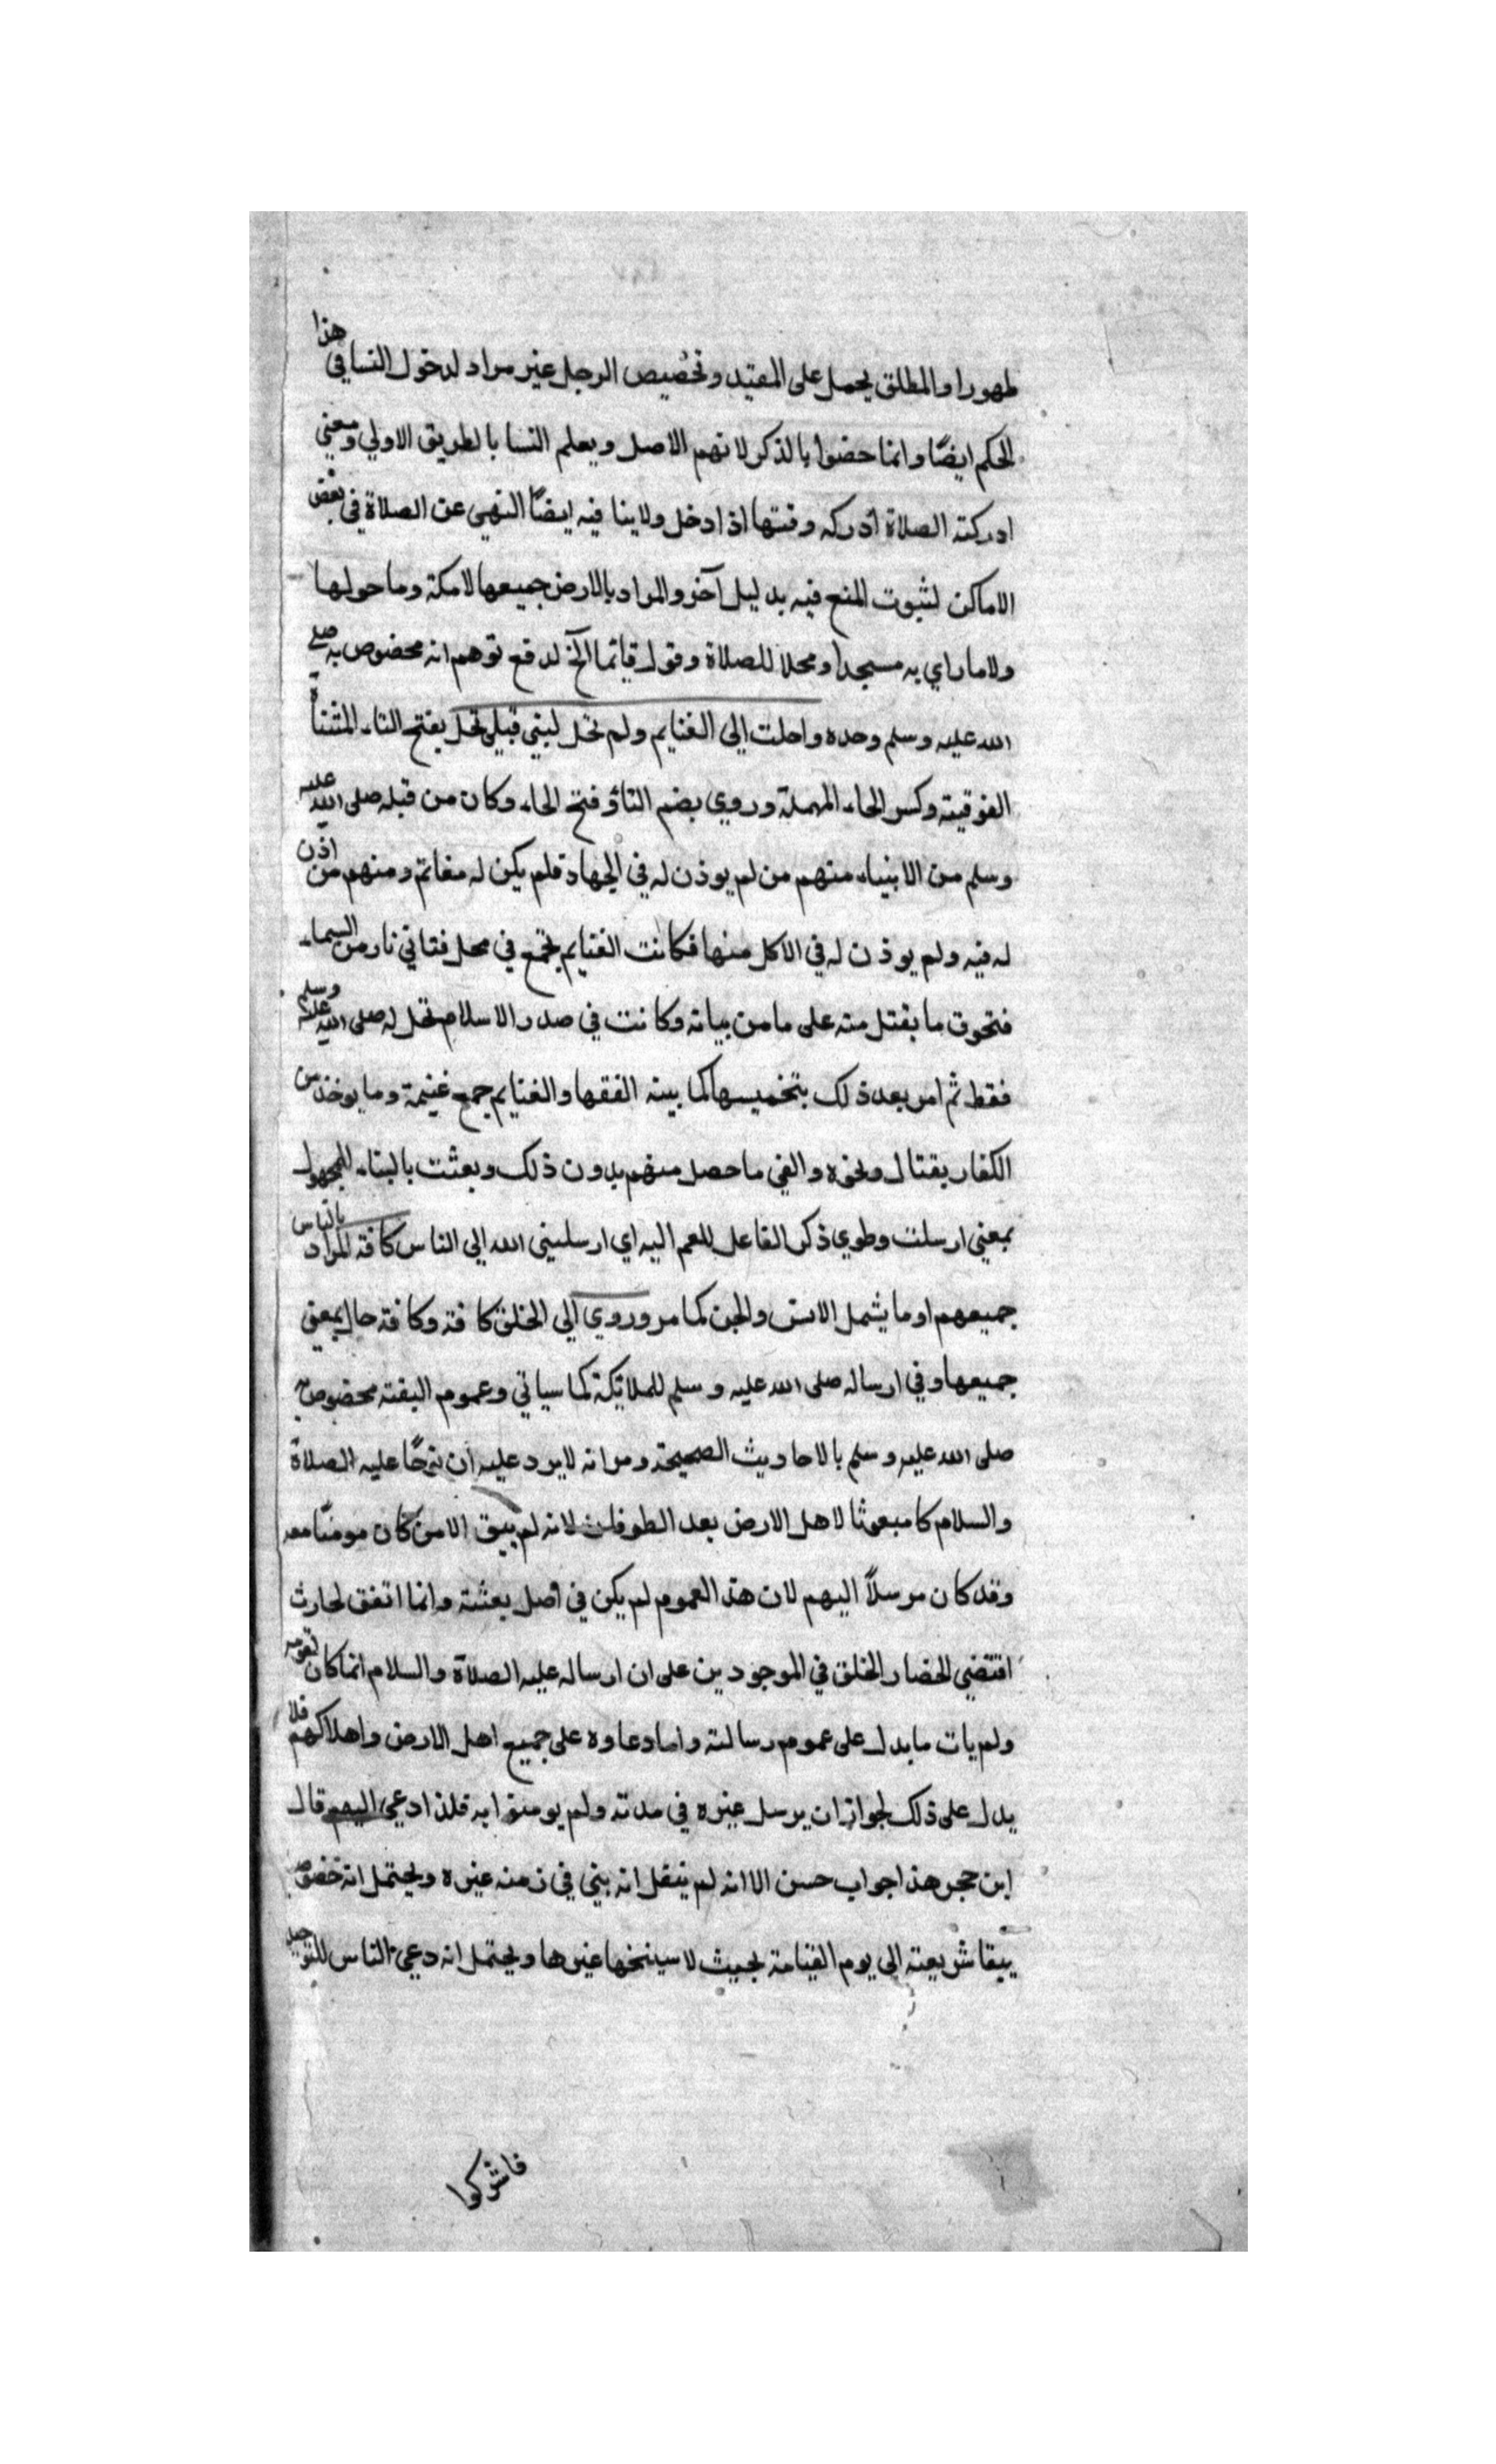 طهورا والمطلق يحمل على المقيد وتخصيص الرجل غير مراد لدخول النسا في هذا
الحكم ايضًا وانما خصوا بالذكر لانهم الاصل ويعلم النسا بالطريق الاولي ومعني
ادركته الصلاة أدركه وقتها اذا دخل ولا ينا فيه ايضًا النهي عن الصلاة في بعض
الاماكن لثبوت المنع فيه بدليل آخر والمراد بالارض جميعها لا مكة وما حولها
ولا ما راي به مسجدا ومحلا للصلاة وقوله قائما الخ لدفع توهم انه مخصوص به صلي
الله عليه وسلم وحده واحلت الى الغنايم ولم تحل لبني قبيلي تحل بفتح التاء المثناة
الفوقيته وكسر الحاء المهملة وروي بضم التاؤ فتح الحاء وكان من قبله صلى الله عليه
وسلم من الانبياء منهم من لم يوذن له في الجهاد فلم يكن له مغانم ومنهم من اذن
له فيه ولم يوذن له في الاكل منها فكانت الغنايم تجمع في محل فتاتي نار من السماء
فتحوق ما يقتل منه على ما من بيانه وكانت في صدر الاسلام تحل له صلى الله عليه وسلم
فقط ثم امر بعد ذلك بتخميسها كما بينه الفقها والغنايم جمع غنيمة وما يوخذ من
الكفار بقتال ونحوه والفي ما حصل منهم بدون ذلك وبعثت بالبناء للمجهول
بمعني ارسلت وطوي ذكر الفاعل للعم اليه اي ارسلني الله الى الناس كافة المراد بالناس
جميعهم او ما يشمل الانس والجن كما مر وروي الي الخلق كافة وكافة حال بمعني
جميعها وفي ارساله صلى الله عليه وسلم للملائكة كما سياتي وعموم البفته مخصوص به
صلى الله عليه وسلم بالاحاديث الصحيحة ومر انه لا يرد عليه ان نوحًا عليه الصلاة
والسلام كا مبعوثا لاهل الارض بعد الطوفان لانه لم يبق الا من كان مومنًا معه
وقد كان مرسلاً اليهم لان هذ العموم لم يكن في أصل بعثته وانما اتفق لحارث
اقتضي لحضار الخلق في الموجودين على ان ارساله عليه الصلاة والسلام انما كان لقومه
ولم يات ما يدل على عموم رسالته واما دعاوه على جميع اهل الارض واهلاكهم فلا
يدل على ذلك لجواز ان يرسل غيره في مدته ولم يومنوا به فلذا دعي اليهم قال
ابن حجر هذا جواب حسن الا انه لم ينقل انه بني في زمنه غيره ويحتمل انه خصوص
ببقا شريعته الى يوم القيامة بحيث لا سينخها غيرها ويحتمل انه دعي الناس للتوحيد
فاشركوا